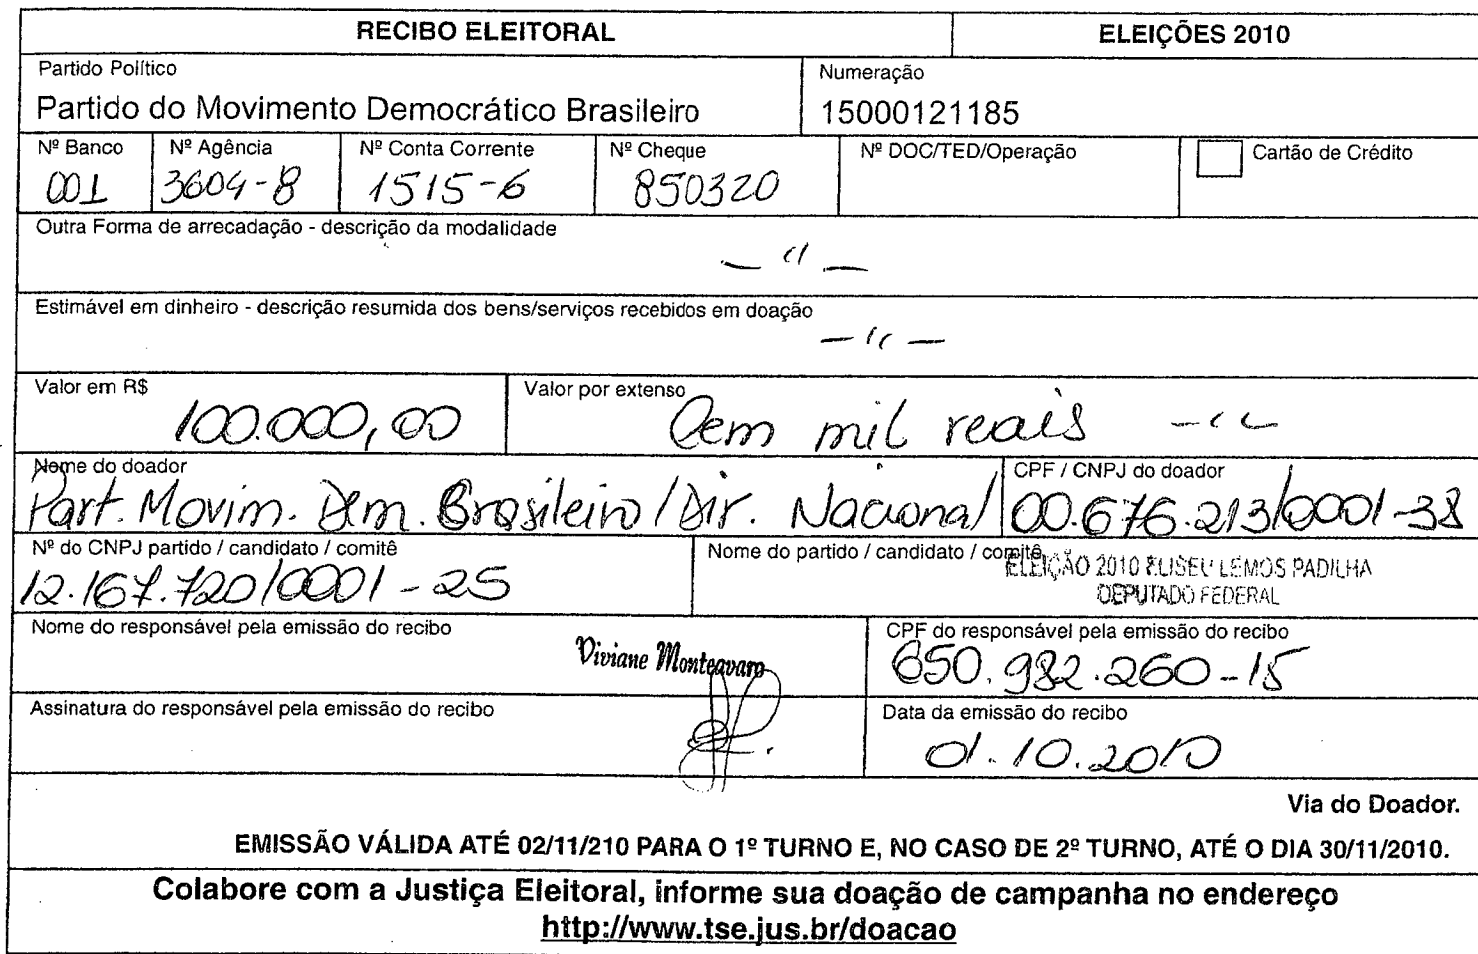 RECIBO ELEITORAL ELEIÇÕES 2010
Partido Político Numeração
Partido do Movimento Democrático Brasileiro 15000121185
Nº Banco Nº Agência Nº Conta Corrente Nº Cheque Nº DOC/TED/Operação Cartão de Crédito
001 3604-8 1515-6 850320
Outra Forma de arrecadação - descrição da modalidade
— " —
Estimável em dinheiro - descrição resumida dos bens/serviços recebidos em doação
— " —
Valor em R$ Valor por extenso
100.000,00 Cem mil reais — "
Nome do doador CPF / CNPJ do doador
Part. Movim. Dem. Brasileiro / Dir. Nacional 00.676.213/0001-38
Nº do CNPJ partido / candidato / comitê Nome do partido / candidato / comitê
12.167.720/0001-25 ELEIÇÃO 2010 ELISEU LEMOS PADILHA
DEPUTADO FEDERAL
Nome do responsável pela emissão do recibo CPF do responsável pela emissão do recibo
Viviane Monteavaro 650.982.260-15
Assinatura do responsável pela emissão do recibo Data da emissão do recibo
01.10.2010
Via do Doador.
EMISSÃO VÁLIDA ATÉ 02/11/210 PARA O 1º TURNO E, NO CASO DE 2º TURNO, ATÉ O DIA 30/11/2010.
Colabore com a Justiça Eleitoral, informe sua doação de campanha no endereço
http://www.tse.jus.br/doacao